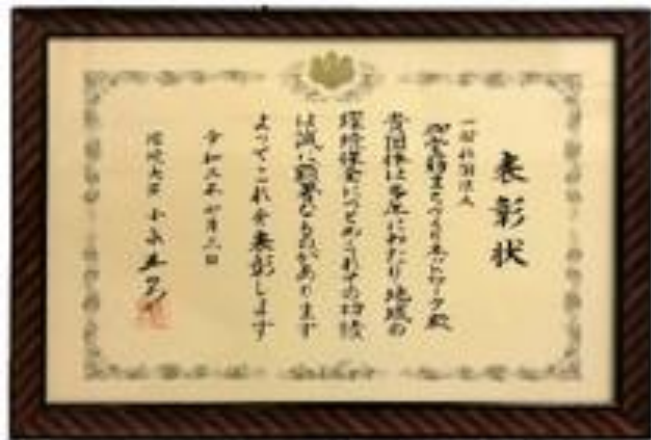 表彰状
一般社団法人
まちづくりネットワーク殿
貴団体は多年にわたり地域の
環境保全につとめられその功績
は誠に顕著なものがあります
よってこれを表彰します
令和三年 月三日
環境大臣 小泉進次郎